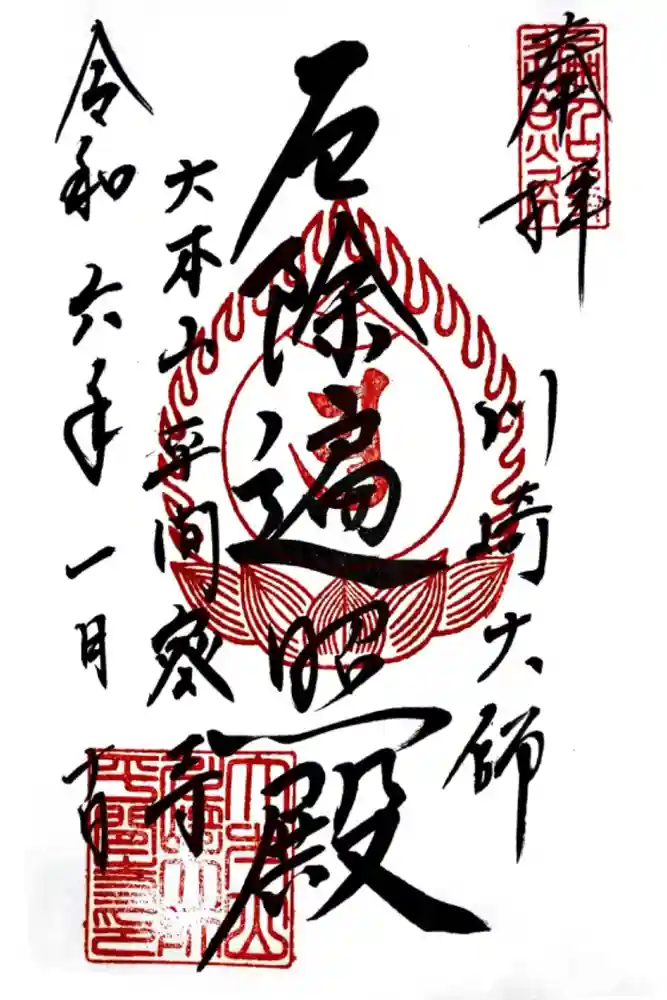 奉拝
川崎大師
厄除遍照殿
大本山平間密寺
令和六年一月